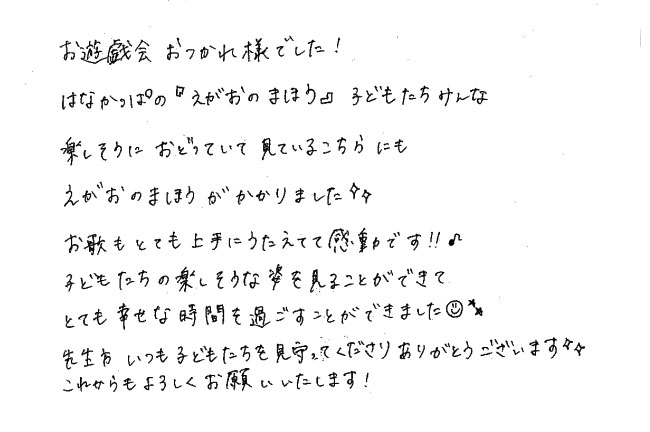 お遊戯会 おつかれ様でした!
はなかっぱの『えがおのまほう』子どもたちみんな
楽しそうに おどっていて 見ているこちらにも
えがおのまほうがかかりました✧✧
お歌もとても上手にうたえてて感動です!!♪
子どもたちの楽しそうな姿を見ることができて
とても幸せな時間を過ごすことができました☺✧✧
先生方 いつも子どもたちを見守ってくださりありがとうございます✧✧
これからもよろしくお願いいたします!